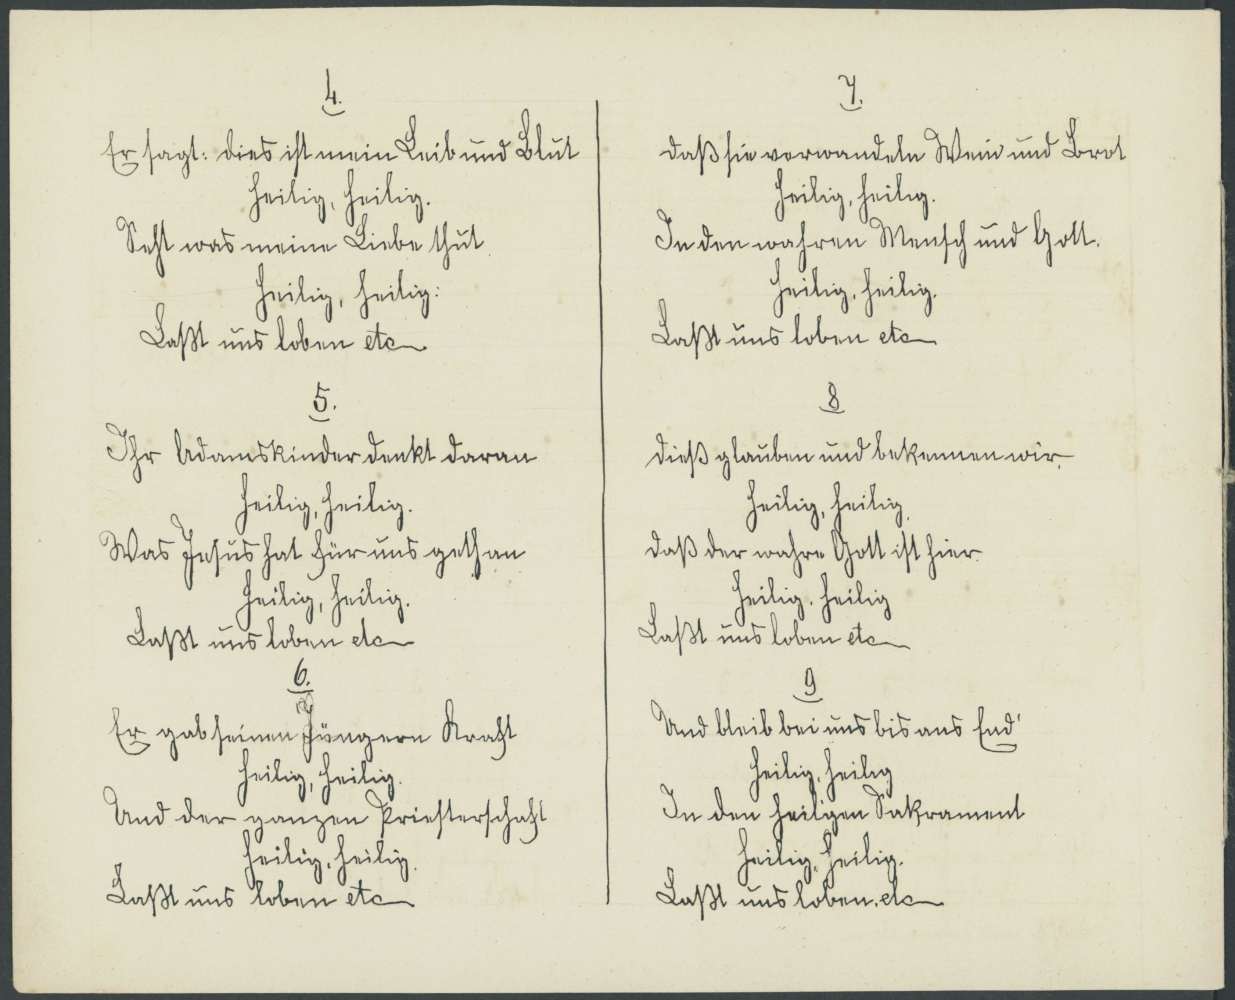 4.
Er sagt: dies ist mein Leib und Blut
heilig, heilig.
Seht was meine Liebe thut
heilig, heilig:
Laßt uns loben etc
5.
Ihr Adamskinder denkt daran
heilig, heilig.
Was Jesus hat für uns gethan
heilig, heilig.
Laßt uns loben etc
6.
Er gab seinen Jüngern Kraft
heilig, heilig.
Und der ganzen Priesterschaft
heilig, heilig.
Laßt uns loben etc
7.
daß sie verwandeln Wein und Brot
heilig, heilig.
In den wahren Mensch und Gott.
heilig, heilig.
Laßt uns loben etc
8
dieß glauben und bekennen wir,
heilig, heilig.
daß der wahre Gott ist hier
heilig, heilig
Laßt uns loben etc
9
Und bleib bei uns bis ans End'
heilig, heilig
In den heiligen Sakrament
heilig, heilig.
Laßt uns loben. etc